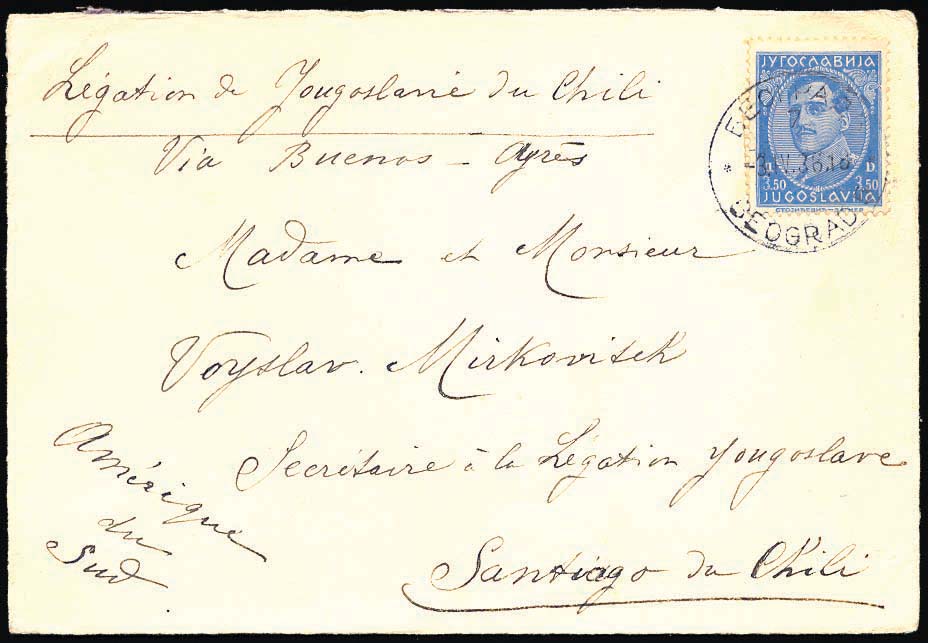 Légation de Yougoslavie du Chili
Via Buenos - Ayrès
Madame et Monsieur
Voyslav. Mirkovitch
Secrétaire à la Légation Yougoslave
Santiago du Chili
Amérique
du
Sud.
ЈУГОСЛАВИЈА
3.50 3.50
JUGOSLAVIJA
БЕОГРАД
BEOGRAD